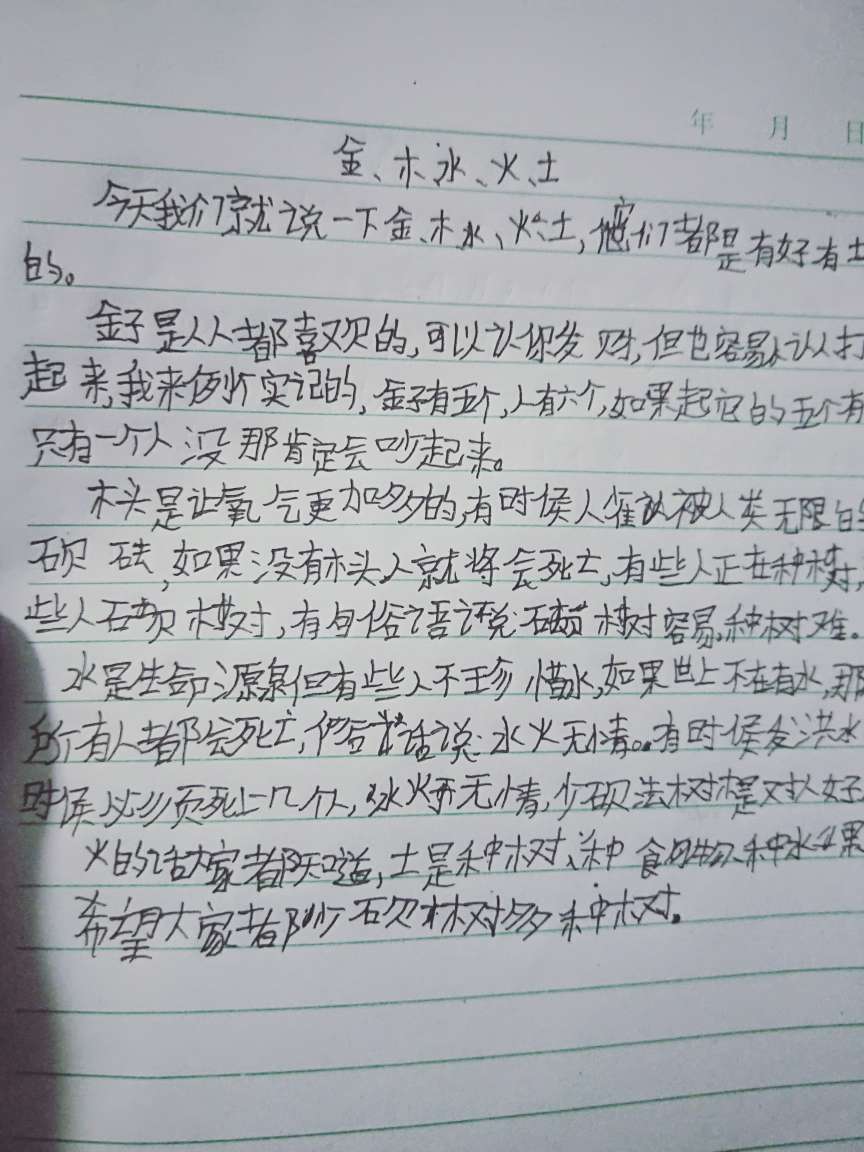 年 月 日
金、木、水、火、土
今天我们就说一下金、木水、火、土,它们都是有好有
的。
金子是人人都喜欢的,可以让你发财,但也容易让人打
起来,我来例 实 的,金子有五个,人有六个,如果起 的五个有
只有一个人没那肯定会吵起来。
木头是让氧气更加多的,有时候 被人类无限的
砍砝,如果没有木头人就将会死亡,有些人正在种树,
些人砍树,有句俗语说:砍树容易,种树难。
水是生命源泉但有些人不珍惜水,如果世上不在有水,那
所有人都会死亡,俗 话说:水火无情。有时候发洪水
时候必须死上几个人,水火 无情,少砍法树 是对 好
火的话大家都知道,土是种树、种食物、种水果
希望大家都少砍树多种树。